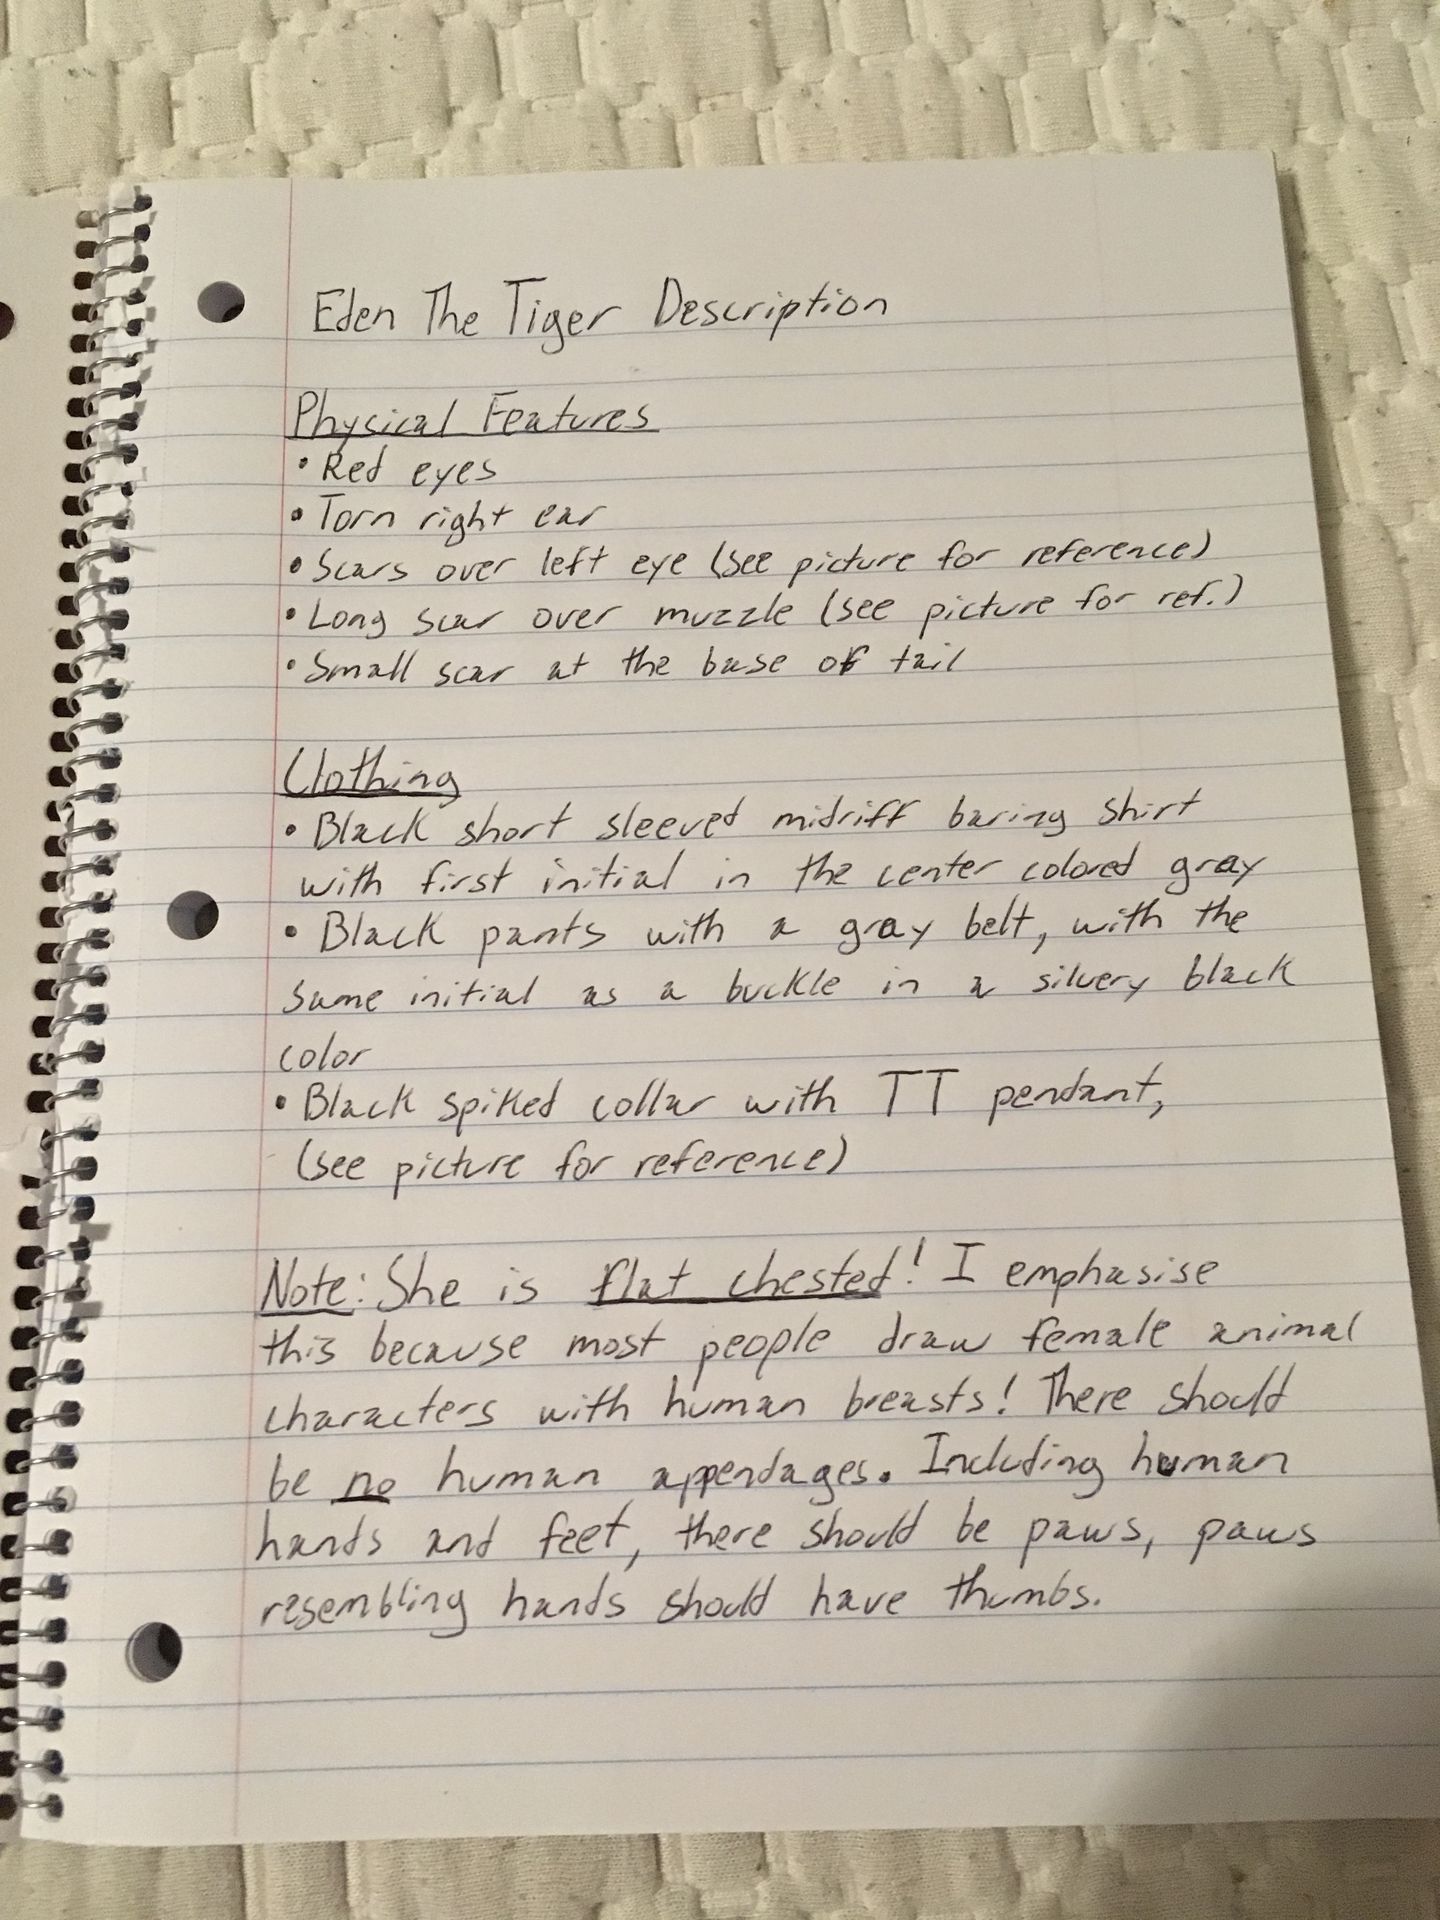 Eden The Tiger Description
Physical Features
• Red eyes
• Torn right ear
• Scars over left eye (see picture for reference)
• Long scar over muzzle (see picture for ref.)
• Small scar at the base of tail
Clothing
• Black short sleeved midriff baring shirt
with first initial in the center colored gray
• Black pants with a gray belt, with the
same initial as a buckle in a silvery black
color
• Black spiked collar with TT pendant,
(see picture for reference)
Note: She is flat chested! I emphasise
this because most people draw female animal
characters with human breasts! There should
be no human appendages. Including human
hands and feet, there should be paws, paws
resembling hands should have thumbs.